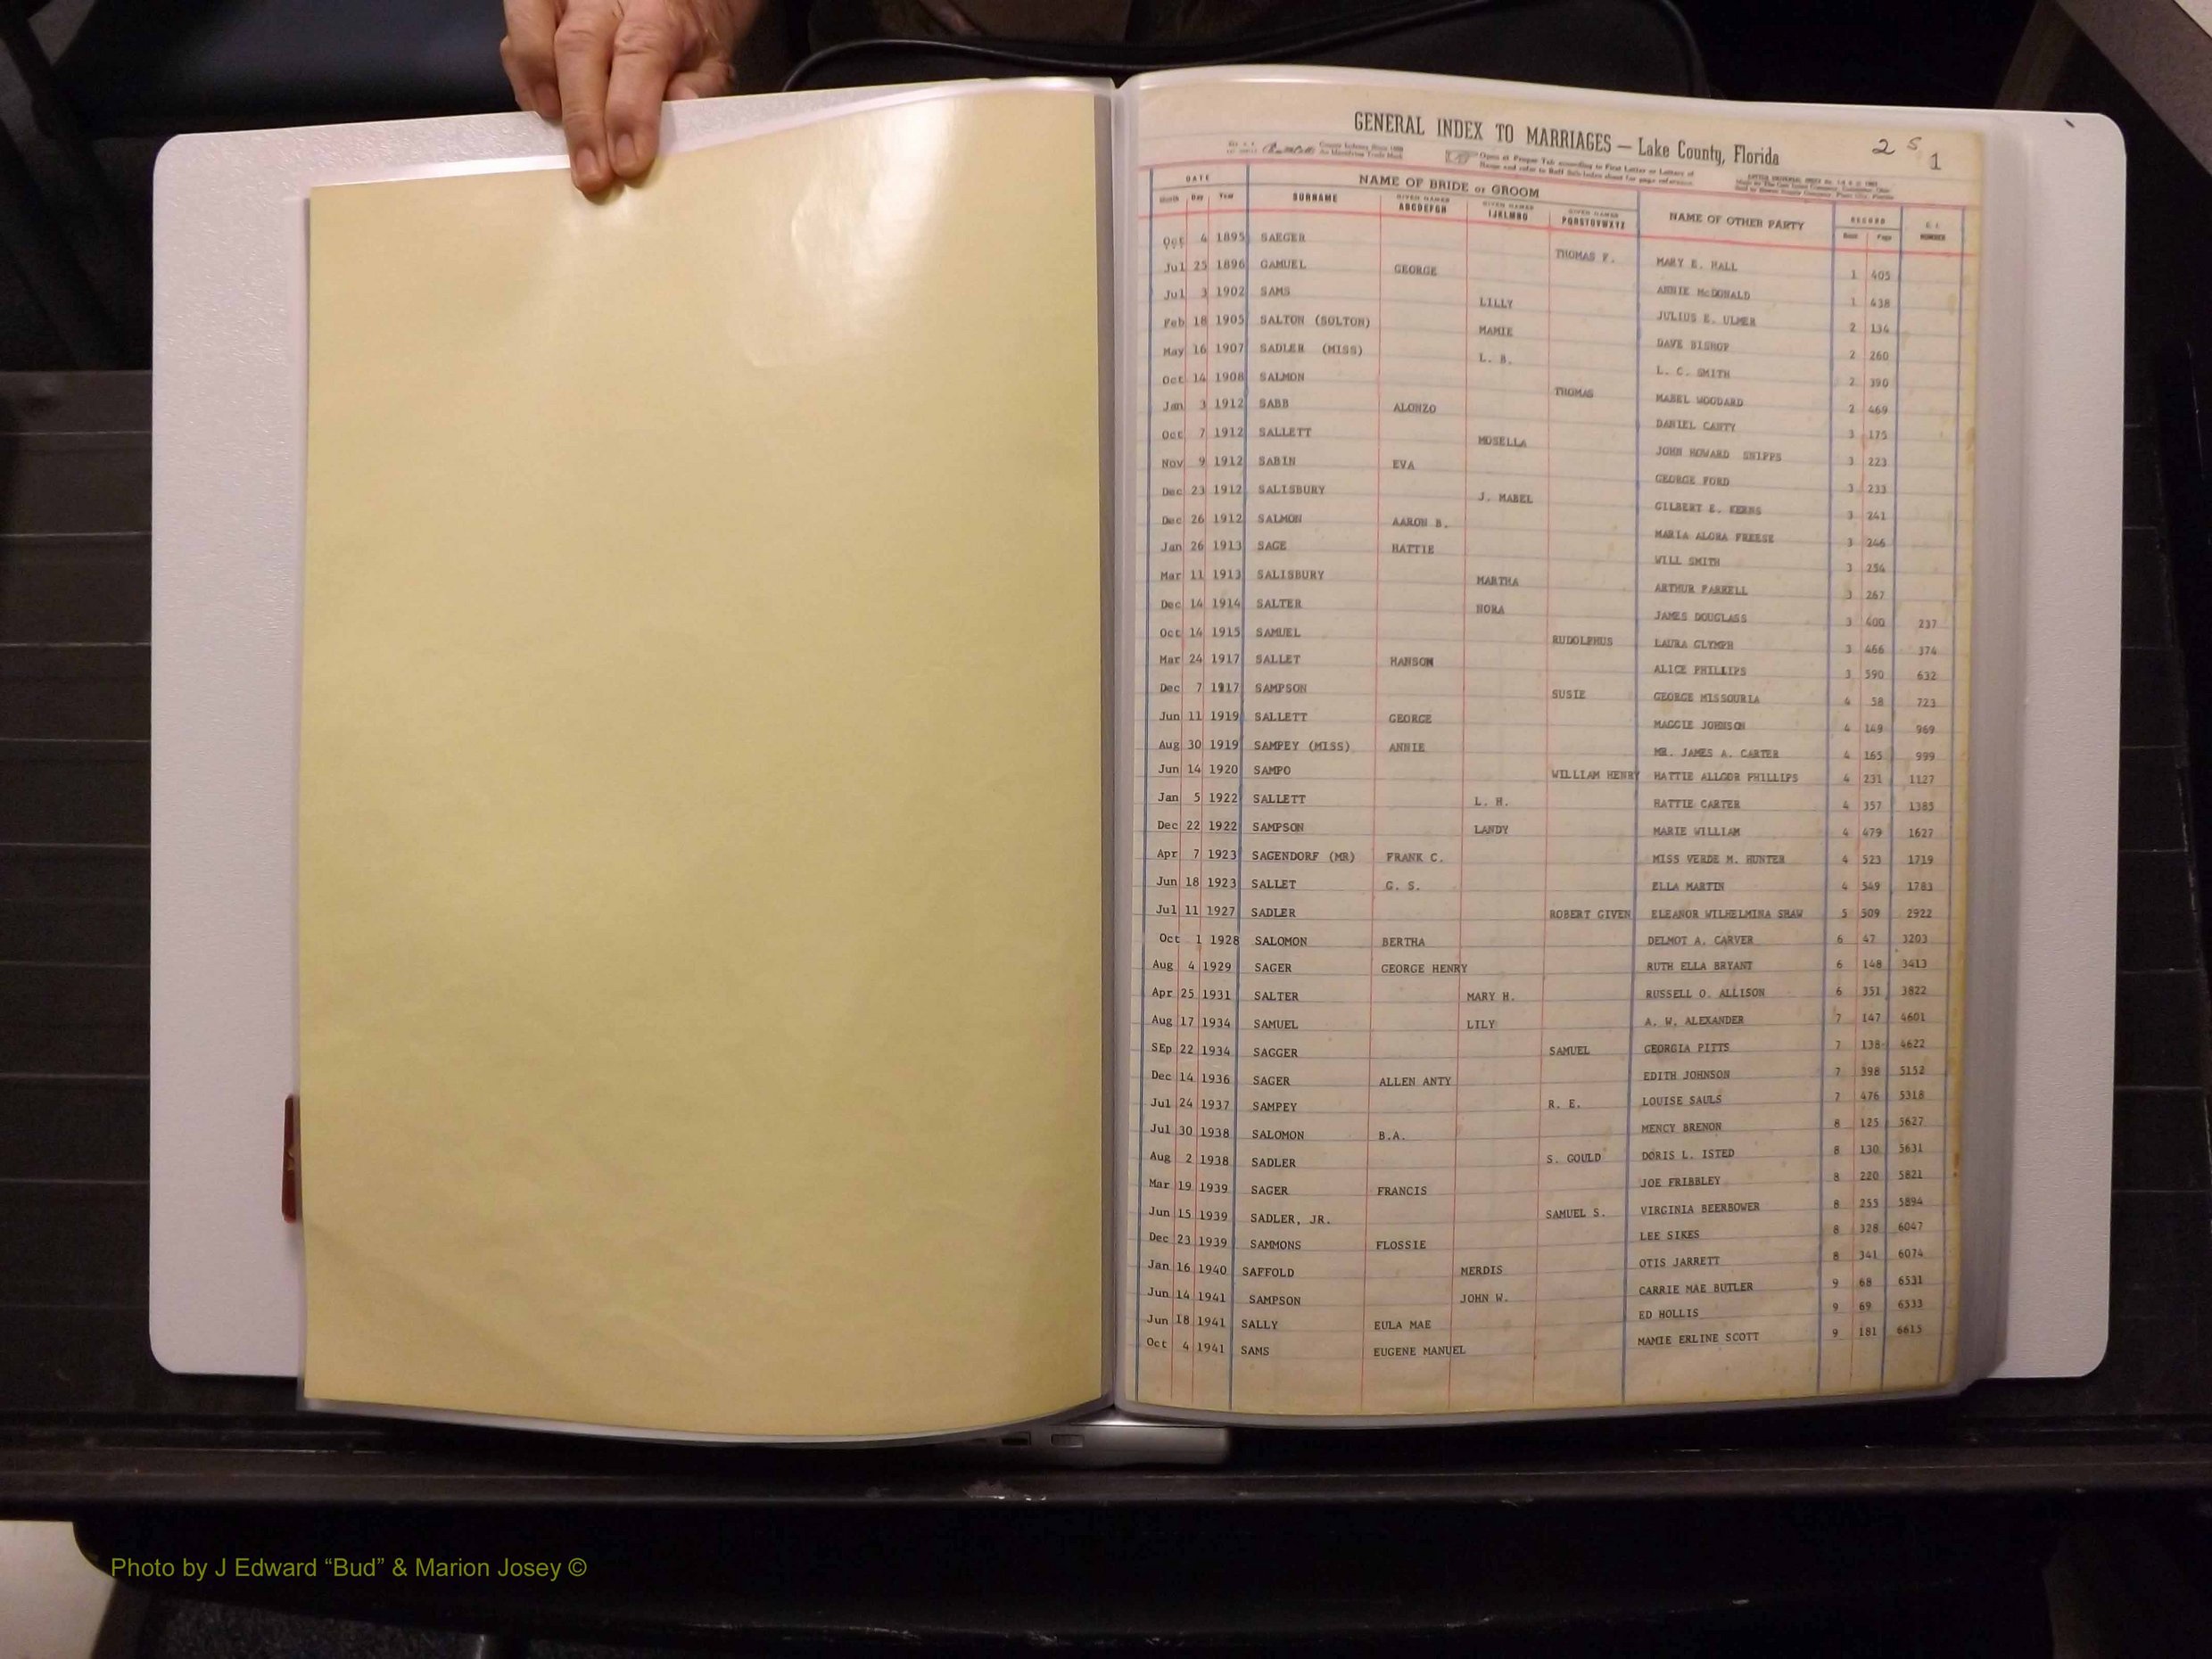 GENERAL INDEX TO MARRIAGES — Lake County, Florida
2 S 1
Open at Proper Tab according to First Letter or Letters of
DATE NAME OF BRIDE or GROOM NAME OF OTHER PARTY RECORD
Month Day Year SURNAME GIVEN NAMES ABCDEFGH GIVEN NAMES IJKLMNO GIVEN NAMES PQRSTUVWXYZ Book Page NUMBER
Oct 4 1895 SAEGER THOMAS F. MARY E. HALL 1 405
Jul 25 1896 GAMUEL GEORGE ANNIE McDONALD 1 438
Jul 3 1902 SAMS LILLY JULIUS E. ULMER 2 134
Feb 18 1905 SALTON (SOLTON) MAMIE DAVE BISHOP 2 260
May 16 1907 SADLER (MISS) L. B. L. C. SMITH 2 390
Oct 14 1908 SALMON THOMAS MABEL WOODARD 2 469
Jan 3 1912 SABB ALONZO DANIEL CANTY 3 175
Oct 7 1912 SALLETT MOSELLA JOHN HOWARD SNIPPS 3 223
Nov 9 1912 SABIN EVA GEORGE FORD 3 233
Dec 23 1912 SALISBURY J. MABEL GILBERT E. KERNS 3 241
Dec 26 1912 SALMON AARON B. MARIA ALORA FREESE 3 246
Jan 26 1913 SAGE HATTIE WILL SMITH 3 254
Mar 11 1913 SALISBURY MARTHA ARTHUR FARRELL 3 267
Dec 14 1914 SALTER NORA JAMES DOUGLASS 3 400 237
Oct 14 1915 SAMUEL RUDOLPHUS LAURA GLYMPH 3 466 374
Mar 24 1917 SALLET HANSON ALICE PHILLIPS 3 590 632
Dec 7 1917 SAMPSON SUSIE GEORGE MISSOURIA 4 58 723
Jun 11 1919 SALLETT GEORGE MAGGIE JOHNSON 4 149 969
Aug 30 1919 SAMPEY (MISS) ANNIE MR. JAMES A. CARTER 4 165 999
Jun 14 1920 SAMPO WILLIAM HENRY HATTIE ALLGOR PHILLIPS 4 231 1127
Jan 5 1922 SALLETT L. H. HATTIE CARTER 4 357 1385
Dec 22 1922 SAMPSON LANDY MARIE WILLIAM 4 479 1627
Apr 7 1923 SAGENDORF (MR) FRANK C. MISS VERDE M. HUNTER 4 523 1719
Jun 18 1923 SALLET G. S. ELLA MARTIN 4 549 1783
Jul 11 1927 SADLER ROBERT GIVEN ELEANOR WILHELMINA SHAW 5 509 2922
Oct 1 1928 SALOMON BERTHA DELMOT A. CARVER 6 47 3203
Aug 4 1929 SAGER GEORGE HENRY RUTH ELLA BRYANT 6 148 3413
Apr 25 1931 SALTER MARY H. RUSSELL O. ALLISON 6 351 3822
Aug 17 1934 SAMUEL LILY A. W. ALEXANDER 7 147 4601
SEp 22 1934 SAGGER SAMUEL GEORGIA PITTS 7 138 4622
Dec 14 1936 SAGER ALLEN ANTY EDITH JOHNSON 7 398 5152
Jul 24 1937 SAMPEY R. E. LOUISE SAULS 7 476 5318
Jul 30 1938 SALOMON B.A. MENCY BRENON 8 125 5627
Aug 2 1938 SADLER S. GOULD DORIS L. ISTED 8 130 5631
Mar 19 1939 SAGER FRANCIS JOE FRIBBLEY 8 220 5821
Jun 15 1939 SADLER, JR. SAMUEL S. VIRGINIA BEERBOWER 8 255 5894
Dec 23 1939 SAMMONS FLOSSIE LEE SIKES 8 328 6047
Jan 16 1940 SAFFOLD MERDIS OTIS JARRETT 8 341 6074
Jun 14 1941 SAMPSON JOHN W. CARRIE MAE BUTLER 9 68 6531
Jun 18 1941 SALLY EULA MAE ED HOLLIS 9 69 6533
Oct 4 1941 SAMS EUGENE MANUEL MAMIE ERLINE SCOTT 9 181 6615
Photo by J Edward “Bud” & Marion Josey ©